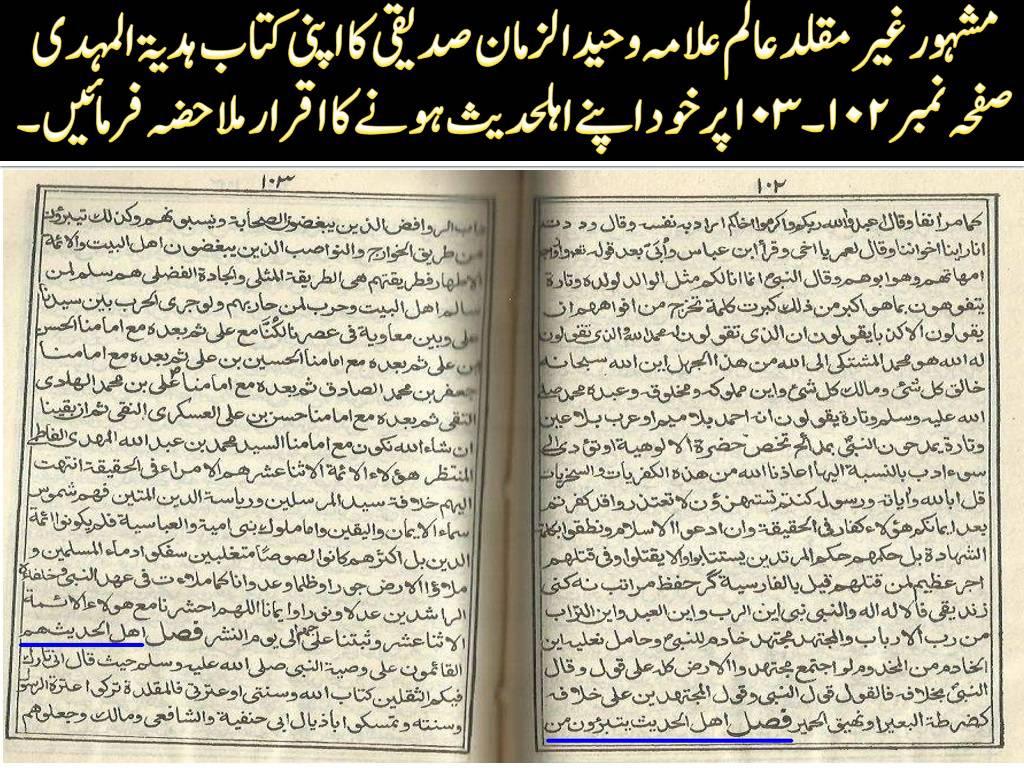 مشہور غیر مقلد عالم علامہ وحید الزمان صدیقی کا اپنی کتاب ہدیۃ المہدی
صفحہ نمبر ۱۰۲۔۱۰۳ پر خود اپنے اہلحدیث ہونے کا اقرار ملاحضہ فرمائیں۔
۱۰۲
كما مر انفا وقال اعبدوا الله ربكم واكرموا اخاكم اراد به نفسه وقال وددت
انا راينا اخواننا وقال لعمر يا اخى وقرأ ابن عباس وأُبَىّ بعد قوله تعه وازواجه
امهاتهم وهو ابوهم وقال النبى انما انا لكم مثل الوالد لولده وتارة
يتفوهون بما هو اكبر من ذلك كبرت كلمة تخرج من افواههم ان
يقولون الا كذبا يقولون ان الذى تقولون له محمد الله والذى تقولون
له الله هو محمد المشتكى الى الله من هذا الجهل اين الله سبحانه
خالق كل شئى ومالك كل شئى واين مملوكه ومخلوقه وعبده محمد صلى
الله عليه وسلم وتارة يقولون انه احمد بلا ميم او عرب بلا عين
وتارة يمدحون النبى بمدائح تخص حضرة الالوهية او تؤدى الى
سوء ادب بالنسبة اليها اعاذنا الله من هذه الكفريات والسخريات
قل ابالله واياته ورسوله كنتم تستهزؤن لا تعتذروا قد كفرتم
بعد ايمانكم هؤلاء كفار فى الحقيقة وان ادعوا الاسلام ونطقوا بكلمة
الشهادة بل حكمهم حكم المرتدين يستتابوا والا يقتلوا وفى قتلهم
اجر عظيم لمن قتلهم قيل بالفارسية گر حفظ مراتب نه كنى
زنديقى فالاله اله والنبى نبى اين الرب واين العبد واين التراب
من رب الارباب والمجتهد مجتهد خادم للنبى وحامل نعليه اين
الخادم من المخدوم لو اجتمع مجتهدوا الارض كل على قول وقال
النبى بخلافه فالقول قول النبى وقول المجتهدين على خلافه
كضرطة البعير او نهيق الحمير فصل اهل الحديث يتبرؤن من
۱۰۳
الروافض الذين يبغضون الصحابة ويسبونهم وكذلك تيبرؤن
من طريق الخوارج والنواصب الذين يبغضون اهل البيت والائمة
الاطهار فطريقتهم هى الطريقة المثلى والجادة الفضلى هم سلم لمن
سالم اهل البيت وحرب لمن حاربهم ولو جرى الحرب بين سيدنا
على وبين معاوية فى عصرنا لكنا مع على ثم بعده مع امامنا الحسن
بن على ثم بعده مع امامنا الحسين بن على ثم بعده مع امامنا
جعفر بن محمد الصادق ثم بعده مع امامنا على بن محمد الهادى
التقى ثم بعده مع امامنا حسن بن على العسكرى النقى ثم ان بقينا
ان شاء الله نكون مع امامنا السيد محمد بن عبد الله المهدى الفاطمى
المنتظر هؤلاء الائمة الاثنا عشر هم الامراء فى الحقيقة انتهت
اليهم خلافة سيد المرسلين ورياسة الدين المتين فهم شموس
سماء الايمان واليقين واما ملوك بنى امية والعباسية فلم يكونوا ائمة
الدين بل اكثرهم كانوا لصوصا متغلبين سفكوا دماء المسلمين و
ملاؤ الارض جورا وظلما وعدوانا كما ملؤت فى عهد النبى وخلفاء
الراشدين عدلا ونورا وايمانا اللهم احشرنا مع هؤلاء الائمة
الاثنا عشر وثبتنا على حبهم الى يوم النشر فصل اهل الحديث هم
القائمون على وصية النبى صلى الله عليه وسلم حيث قال انى تارك
فيكم الثقلين كتاب الله وسنتى او عترتى فالمقلدة تركوا عترة الرسول
وسنته وتمسكوا باذيال ابى حنفية والشافعى ومالك وجعلوهم